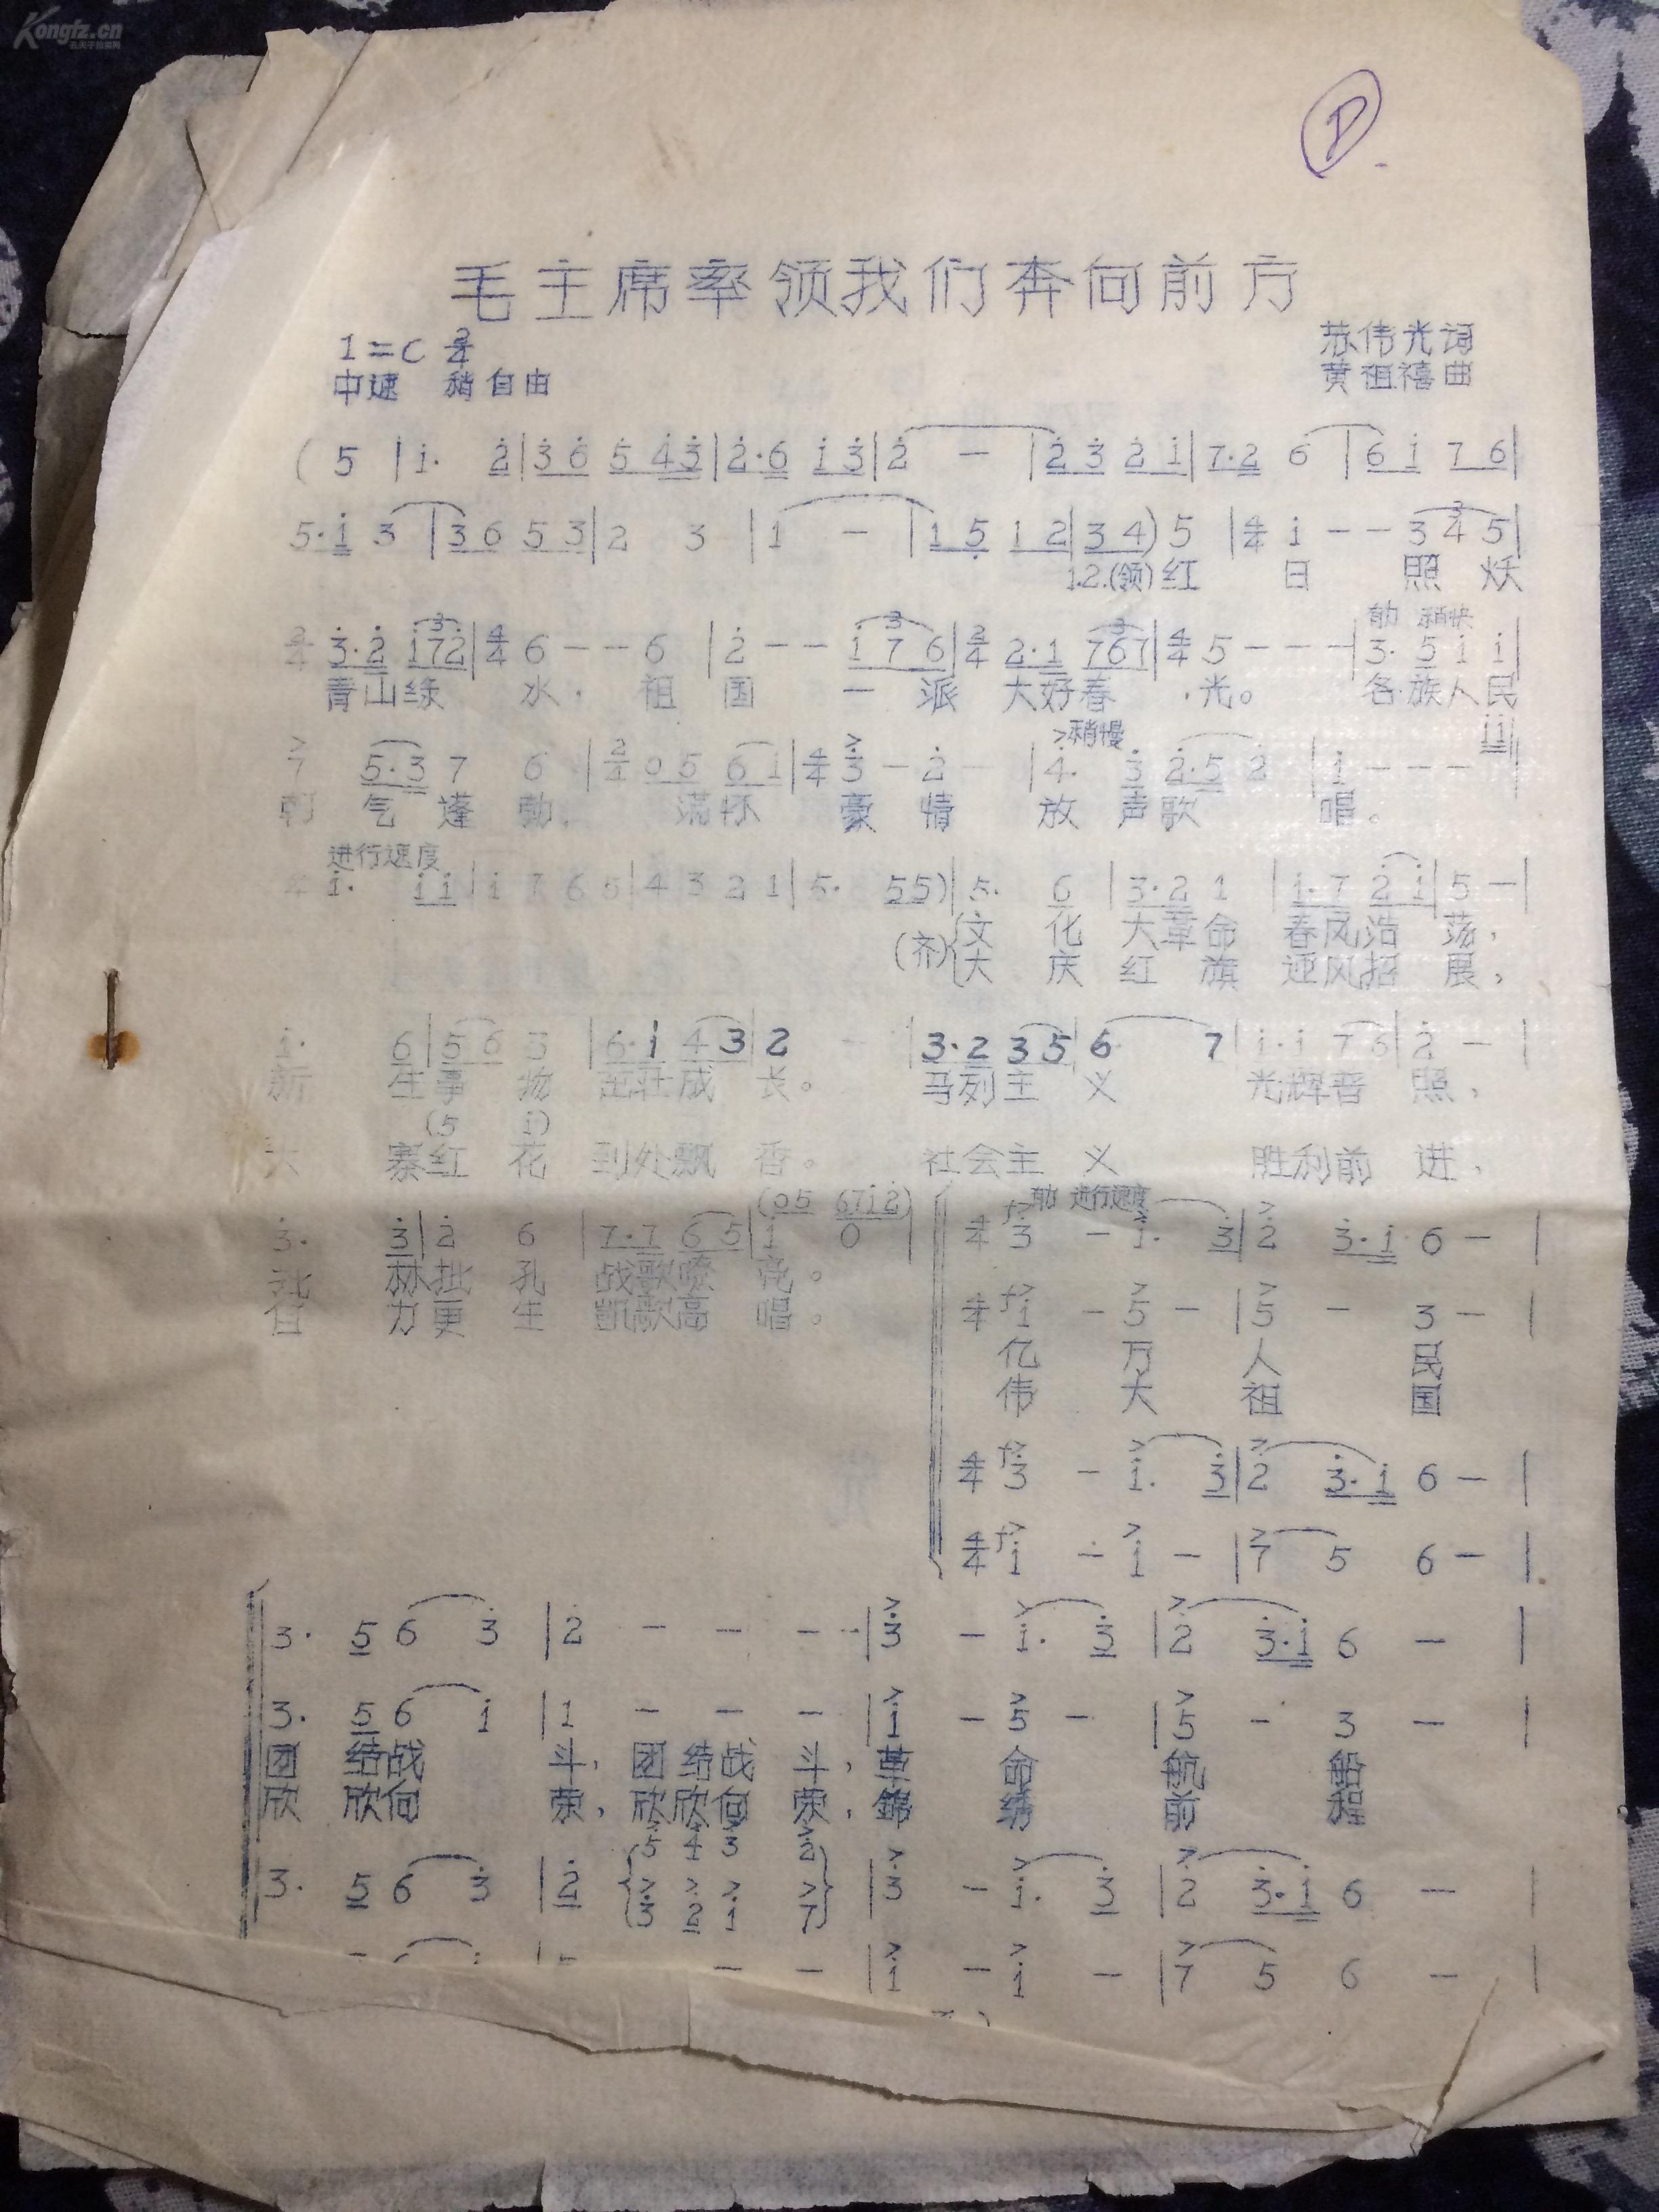 Kongfz.cn
P
毛主席率领我们奔向前方
1=C 2/4
苏伟光词
中速 稍自由
黄祖禧曲
( 5 | i· 2̇ | 3̇ 6̇ 5̇ 4̇ 3̇ | 2̇·6 i 3̇ | 2̇ — | 2̇ 3̇ 2̇ i | 7·2̇ 6 | 6 i 7 6 |
5·i 3 | 3 6 5 3 | 2 3 | 1 — | 1 5 1 2 | 3 4 ) 5 | 4/4 i — — 3 4 5 |
1.2.(领) 红 日 照 妖
2/4 3̇·2̇ i 7 2̇ | 4/4 6 — — 6 | 2̇ — — i 7 6 | 2/4 2·1 7 6 7 | 4/4 5 — — — | 3· 5 i i |
稍快
青山绿 水, 祖 国 一 派 大好春 光。 各族人民
稍慢
7 5·3 7 6 | 2/4 0 5 6 i | 4/4 3̇ — 2̇ — | 4̇· 3̇ 2̇·5 2̇ | i — — —
i i
气 蓬 勃, 满怀 豪 情 放 声歌 唱。
进行速度
i· i i | i 7 6 5 | 4 3 2 1 | 5· 5 5 ) | 5· 6 | 3·2 1 | i·7 2̇ i | 5 — |
(齐) 文 化 大革命 春风浩 荡,
大 庆 红 旗 迎风招 展,
i· 6 | 5 6 3 | 6·i 4 3 | 2 — | 3·2 3 5 | 6 7 | i·i 7 6 | 2̇ — |
新 生事 物 茁壮成 长。 马列主 义 光辉普 照,
(5 i)
寨红 花 到处飘 香。 社会主 义 胜利前 进,
(0 5 6 7 i 2̇)
进行速度
3̇· 3̇ | 2̇ 6 | 7·7 6 5 | i 0 | 4/4 3̇ — i· 3̇ | 2̇ 3̇·i 6 — |
批 林批 孔 战歌嘹 亮。
4/4 i — 5 — | 5 — 3 — |
力更 生 凯歌高 唱。
亿 万 人 民
伟 大 祖 国
4/4 3̇ — i· 3̇ | 2̇ 3̇·i 6 — |
4/4 i — i — | 7 5 6 — |
3· 5 6 3̇ | 2̇ — — — | 3̇ — i· 3̇ | 2̇ 3̇·i 6 — |
3· 5 6 i | 1 — — — | i — 5 — | 5 — 3 — |
团 结战 斗, 团结战 斗, 革 命 航 船
欣 欣向 荣, 欣欣向 荣, 錦 绣 前 程
5̇ 4̇ 3̇ 2̇
3· 5 6 3̇ | 2̇ 3̇ 2̇ i 7 | 3̇ — i· 3̇ | 2̇ 3̇·i 6 — |
— — | i — i — | 7 5 6 — |